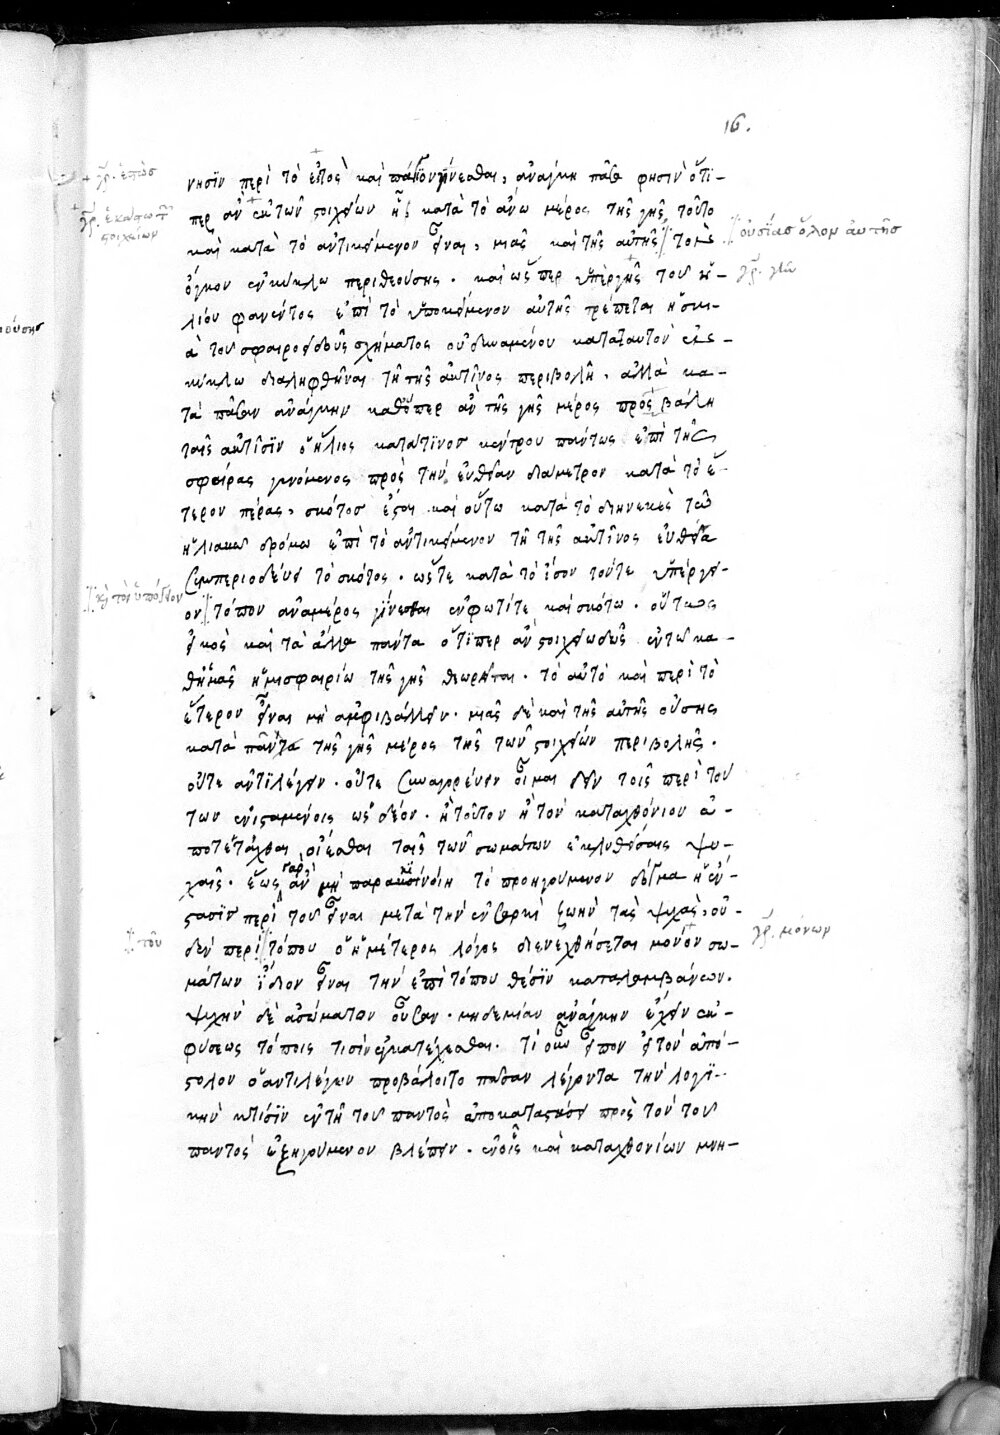 16.
γρ. ἐπῶσ
νησϊν περὶ τὸ εἶτος καὶ πάλιν γίνεσθαι, ἀνάγκη πᾶσα φησὶν ὅτι-
περ ἂν ἐκ τῶν στοιχείων ᾖ κατὰ τὸ ἄνω μέρος τῆς γῆς, τοῦτο
γρ. ἑκάστῳ τῶν στοιχείων
καὶ κατὰ τὸ ἀντικείμενον εἶναι, μιᾶς καὶ τῆς αὐτῆς τὸ
οὐσίασ ὅλον αὐτῆσ
ὄγκον ἐν κύκλω περιθεούσης. καὶ ὥσπερ ὑπὲρ γῆς τοῦ ἡ-
γρ. γῆν
λίου φανέντος ἐπὶ τὸ ὑποκείμενον αὐτῆς τρέπεται ἡ σκι-
ὰ τοῦ σφαιροειδοῦς σχήματος οὐ δυναμένου κατὰ ταυτὸν ἐν
κύκλω διαληφθῆναι τῆ τῆς ἀκτῖνος περιβολῆ. ἀλλὰ κα-
τὰ πᾶσαν ἀνάγκην καθ' ὅπερ ἂν τῆς γῆς μέρος προσβάλη
ταῖς ἀκτῖσϊν ὁ ἥλιος κατά τϊνοσ κέντρου πάντως ἐπὶ τῆς
σφαίρας γινόμενος πρὸς τὴν εὐθεῖαν διάμετρον κατὰ τὸ ἕ-
τερον πέρας, σκότοσ ἔσται καὶ οὕτω κατὰ τὸ διηνεκὲς τῶ
ἡλιακῶ δρόμω ἐπὶ τὸ ἀντικείμενον τῆ τῆς ἀκτῖνος εὐθεία
συμπεριοδεύει τὸ σκότος. ὥστε κατὰ τὸ ἴσον τόν τε ὑπέργει-
κ τὸν ὑπόγειον
ον τόπον ἀναμέρος γίνεσθαι ἐν φωτί τε καὶ σκότω. οὕτως
εἰκὸς καὶ τὰ ἄλλα πάντα ὅτϊπερ ἂν στοιχειωδῶς ἐν τῶ κα-
θ' ἡμᾶς ἡμισφαιρίω τῆς γῆς θεωρῆται. τὸ αὐτὸ καὶ περὶ τὸ
ἕτερον εἶναι μὴ ἀμφιβάλλειν. μιᾶς δὲ καὶ τῆς αὐτῆς οὔσης
κατὰ πάντα τῆς γῆς μέρος τῆς τῶν στοιχείων περιβολῆς.
οὔτε ἀντϊλέγειν. οὔτε συναγορεύειν οἶμαι δεῖν τοῖς περὶ τού-
των ἐνισταμένοις ὡς δέον. ἢ τοῦτον ἢ τὸν καταχθόνιον ἀ-
ποτετάχθαι οἴεσθαι ταῖς τῶν σωμάτων ἐκλυθείσαις ψυ-
χαῖς. ἕως γὰρ ἂν μὴ παρακινοίη τὸ προηγούμενον δόγμα ἡ ἔν-
στασϊς περὶ τοῦ εἶναι μετὰ τὴν ἐν σαρκὶ ζωὴν τὰς ψυχὰς, οὐ-
δὲν περὶ τόπου ὁ ἡμέτερος λόγος διενεχθήσεται μόνον σω-
τοῦ
γρ. μόνων
μάτων ἴδιον εἶναι τὴν ἐπὶ τόπου θέσϊν καταλαμβάνων.
ψυχὴν δὲ ἀσώματον οὖσαν. μηδεμίαν ἀνάγκην ἔχειν ἐκ
φύσεως τόποις τισὶν ἐγκατέχεσθαι. τί οὖν εἶπον εἰ τὸν ἀπό-
στολον ὁ ἀντιλέγων προβάλοιτο πᾶσαν λέγοντα τὴν λογϊ-
κὴν κτίσϊν ἐν τῆ τοῦ παντὸς ἀποκαταστάσει πρὸς τὸν τοῦ
παντὸς ἐξηγούμενον βλέπειν. ἐν οἷς καὶ καταχθονίων μνη-